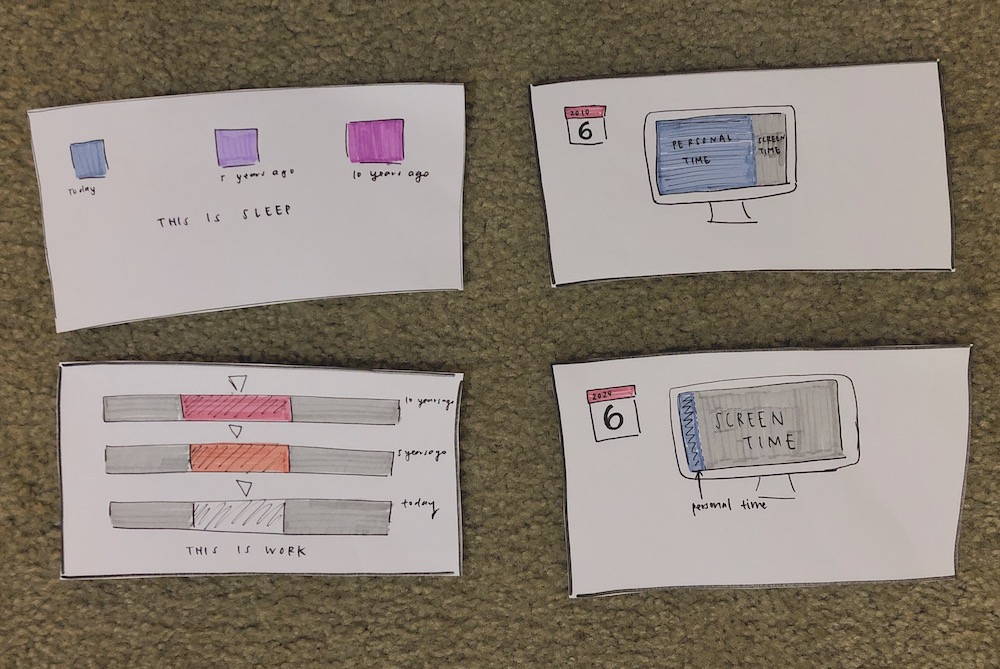 Today
5 years ago
10 years ago
THIS IS SLEEP
2010
6
PERSONAL
TIME
SCREEN
TIME
10 years ago
5 years ago
today
THIS IS WORK
2020
6
SCREEN
TIME
personal time